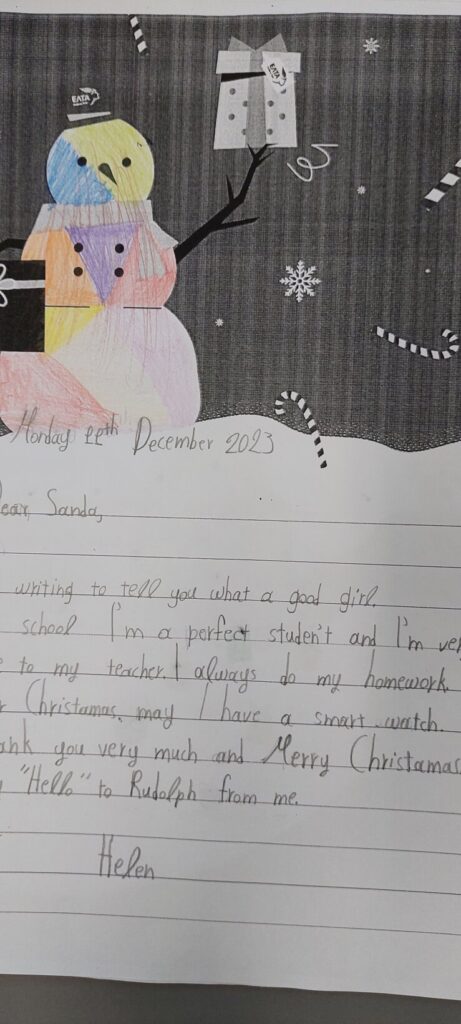 ΕΛΤΑ
ΕΛΤΑ
Monday 11th December 2023
ear, Sanda,
writing to tell you what a good girl.
school I'm a perfect studen't and I'm ver
to my teacher. I always do my homework.
r Christamas, may I have a smart watch.
ank you very much and Merry Christamas
"Hello" to Rudolph from me.
Helen